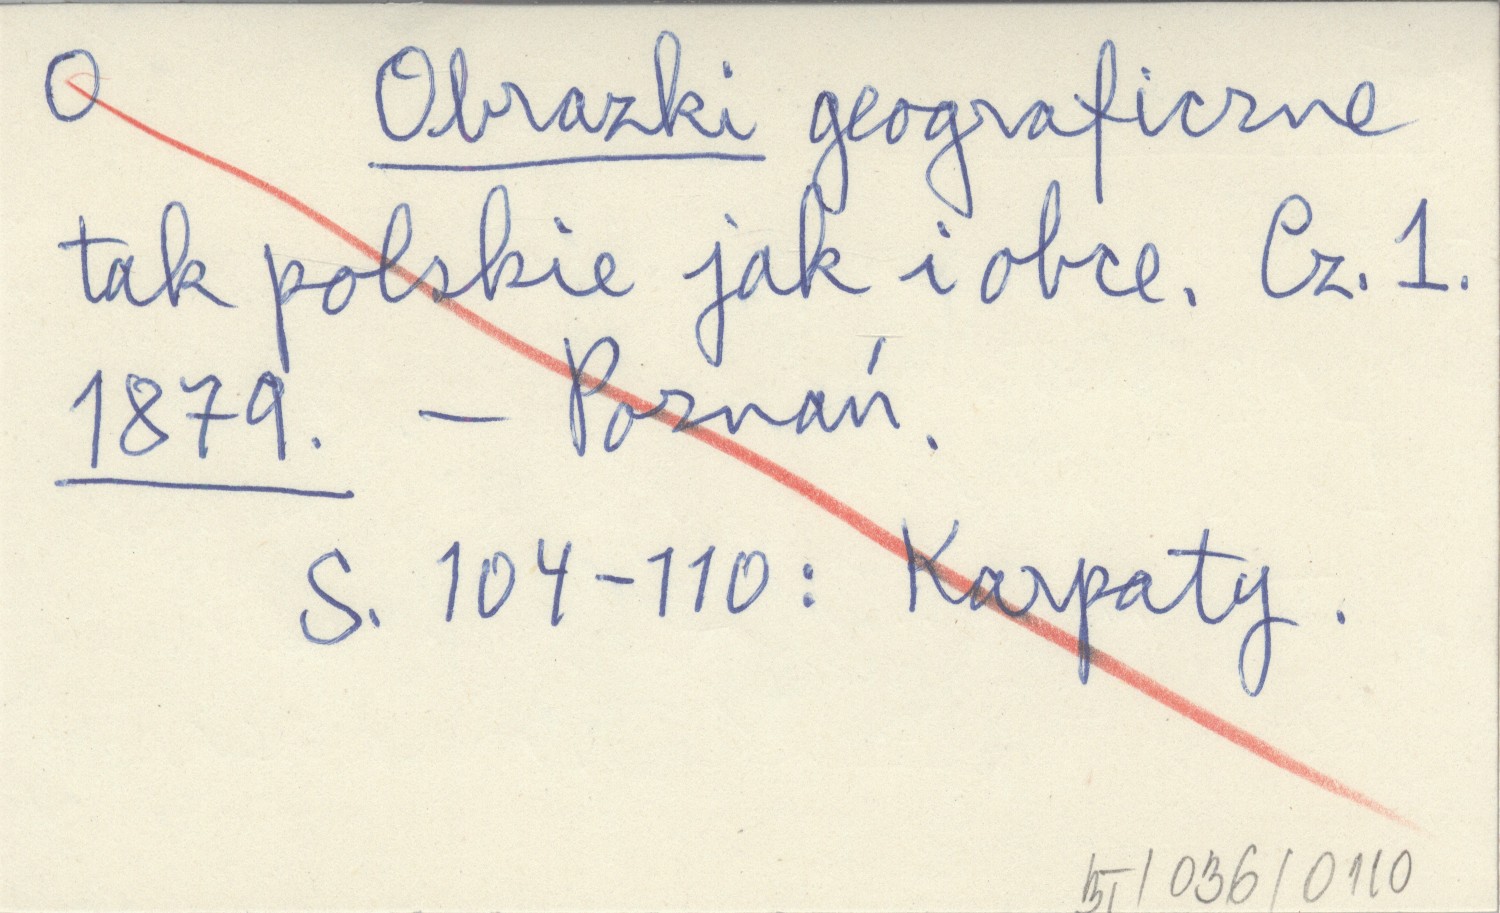 O Obrazki geograficzne
tak polskie jak i obce. Cz. 1.
1879. – Poznań.
S. 104-110: Karpaty.
/036/0110